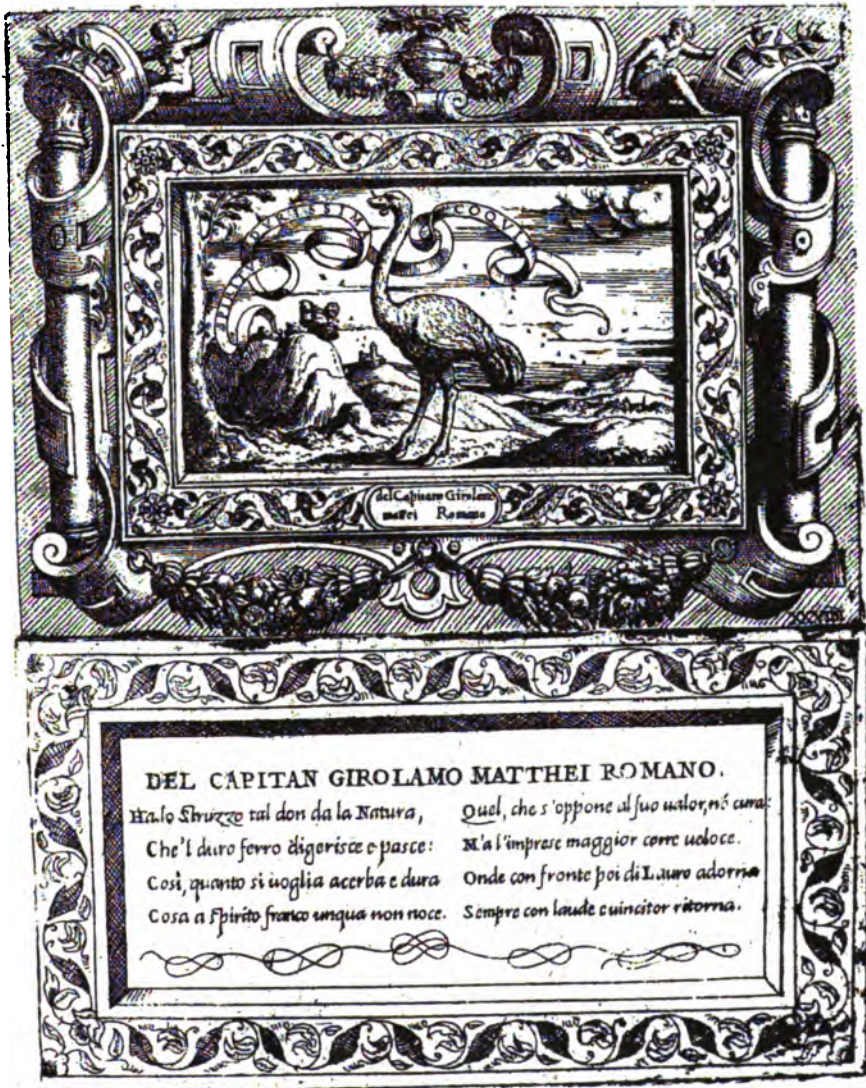 COQVIT
del Capitano Girolamo
mattei Romano
DEL CAPITAN GIROLAMO MATTHEI ROMANO.
Ha lo Struzzo tal don da la Natura,
Che'l duro ferro digerisce e pasce:
Così, quanto si uoglia acerba e dura
Cosa a spirito franco unqua non noce.
Quel, che s'oppone al suo ualor, nõ cura:
M'a l'imprese maggior corre ueloce.
Onde con fronte poi di Lauro adorna
Sempre con laude e uincitor ritorna.